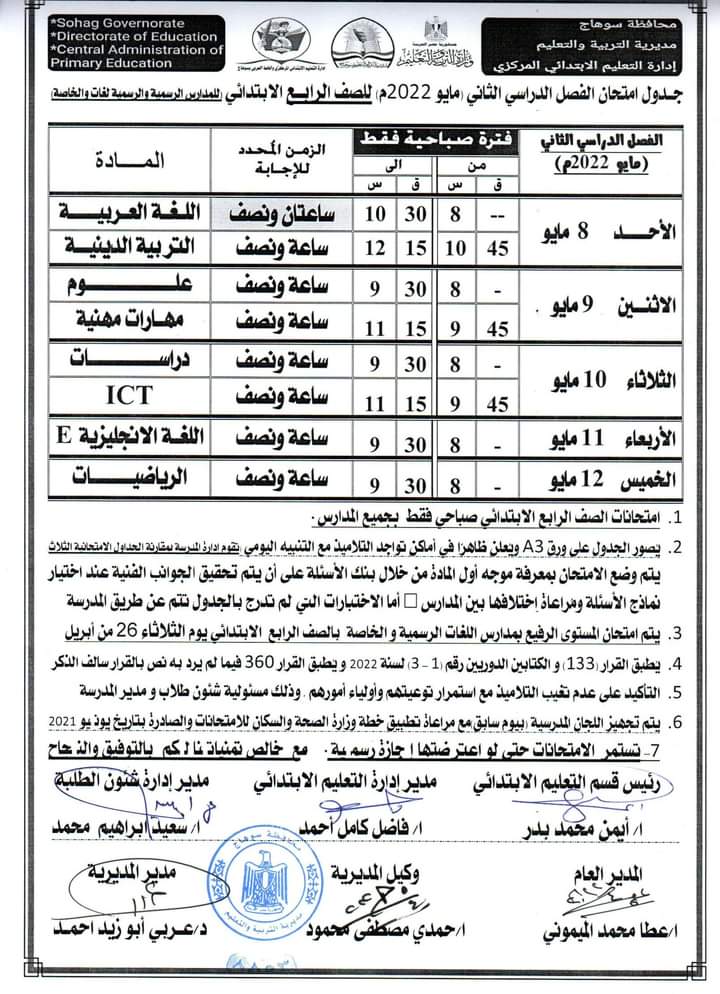 *Sohag Governorate
*Directorate of Education
*Central Administration of
Primary Education
محافظة سوهاج
مديرية التربية والتعليم
إدارة التعليم الابتدائي المركزي
جدول امتحان الفصل الدراسي الثاني (مايو 2022م) للصف الرابع الابتدائي (للمدارس الرسمية والرسمية لغات والخاصة)
الفصل الدراسي الثاني (مايو 2022م) فترة صباحية فقط الزمن المحدد للإجابة المادة
من الى
ق س ق س
الأحد 8 مايو -- 8 30 10 ساعتان ونصف اللغة العربية
45 10 15 12 ساعة ونصف التربية الدينية
الاثنين 9 مايو - 8 30 9 ساعة ونصف علوم
45 9 15 11 ساعة ونصف مهارات مهنية
الثلاثاء 10 مايو - 8 30 9 ساعة ونصف دراسات
45 9 15 11 ساعة ونصف ICT
الأربعاء 11 مايو - 8 30 9 ساعة ونصف اللغة الانجليزية E
الخميس 12 مايو - 8 30 9 ساعة ونصف الرياضيات
1. امتحانات الصف الرابع الابتدائي صباحي فقط بجميع المدارس.
2. يصور الجدول على ورق A3 ويعلن ظاهرًا في أماكن تواجد التلاميذ مع التنبيه اليومي تقوم ادارة المدرسة بمقارنة الجداول الامتحانية الثلاث
يتم وضع الامتحان بمعرفة موجه أول المادة من خلال بنك الأسئلة على أن يتم تحقيق الجوانب الفنية عند اختيار
نماذج الأسئلة ومراعاة إختلافها بين المدارس □ أما الاختبارات التي لم تدرج بالجدول تتم عن طريق المدرسة
3. يتم امتحان المستوى الرفيع بمدارس اللغات الرسمية و الخاصة بالصف الرابع الابتدائي يوم الثلاثاء 26 من أبريل
4. يطبق القرار (133) و الكتابين الدوريين رقم (1 – 3) لسنة 2022 و يطبق القرار 360 فيما لم يرد به نص بالقرار سالف الذكر
5. التأكيد على عدم تغيب التلاميذ مع استمرار توعيتهم وأولياء أمورهم . وذلك مسئولية شئون طلاب و مدير المدرسة
6. يتم تجهيز اللجان المدرسية (بيوم سابق مع مراعاة تطبيق خطة وزارة الصحة والسكان للامتحانات والصادرة بتاريخ يونيو 2021
7- تستمر الامتحانات حتى لو اعترضتها إجازة رسمية. مع خالص تمنياتنا لكم بالتوفيق والنجاح
رئيس قسم التعليم الابتدائي مدير إدارة التعليم الابتدائي مدير إدارة شئون الطلبة
ا/ أيمن محمد بدر ا/ فاضل كامل أحمد ا/ سعيد ابراهيم محمد
المدير العام وكيل المديرية مدير المديرية
ا/عطا محمد الميموني ا/حمدي مصطفى محمود د/عربي أبو زيد احمد
محافظة سوهاج
مديرية التربية والتعليم